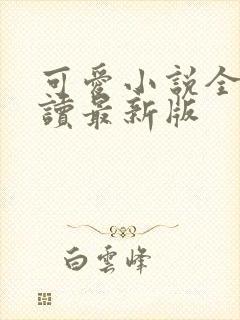 可愛小說全
讀最新版
白雲峰